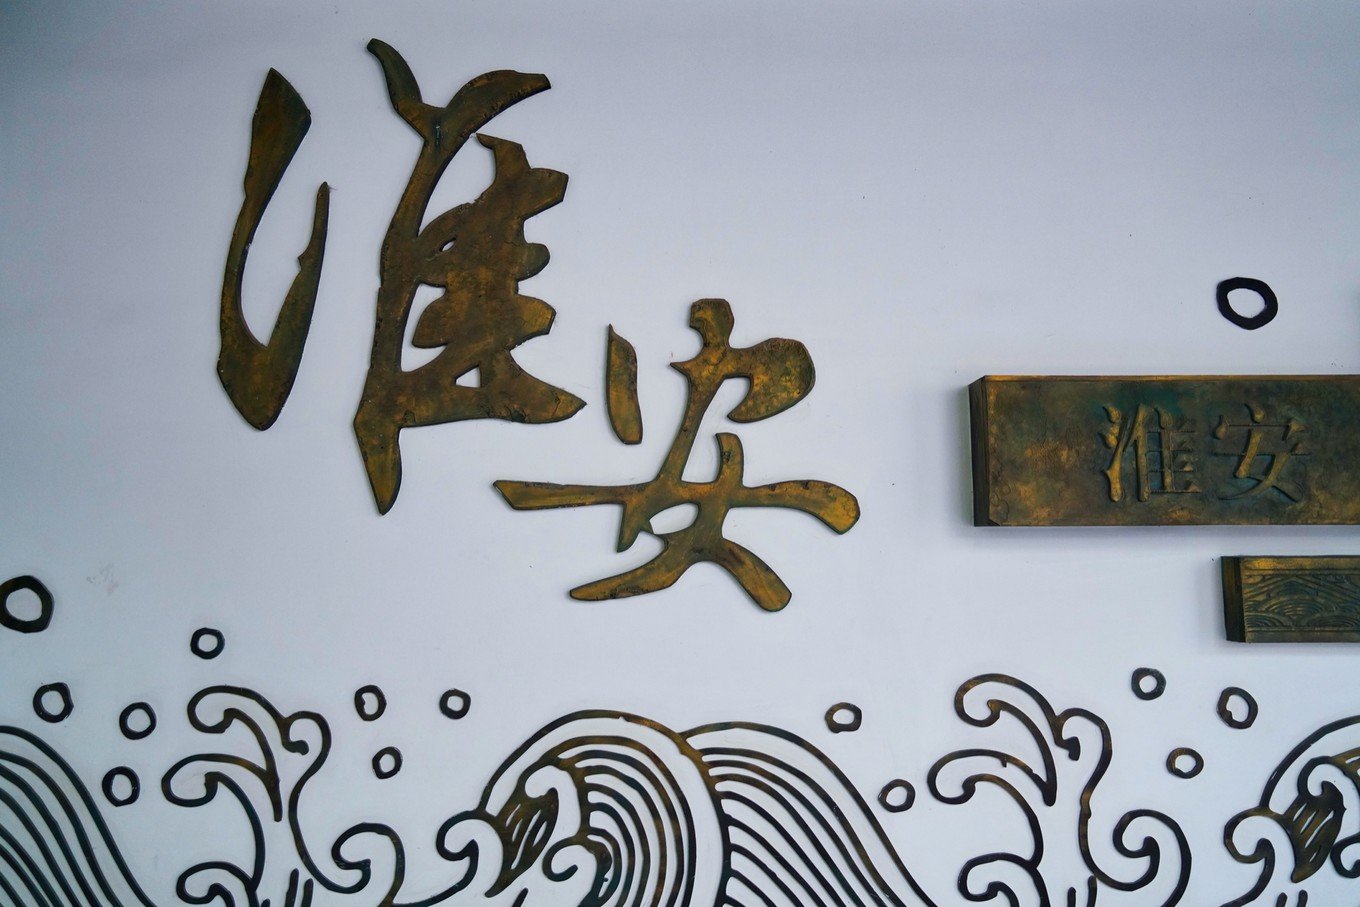 淮安
淮安